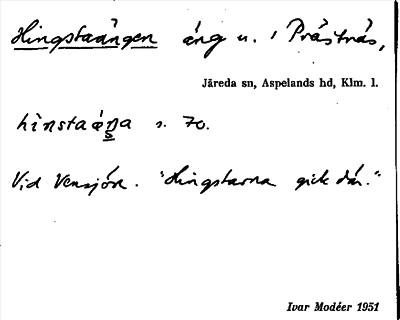 Hingstaängen äng u. i Prästnäs,
Järeda sn, Aspelands hd, Klm. l.
hìnstaäŋa s. 70.
Vid Versjön. "Hingstarna gick där."
Ivar Modéer 1951